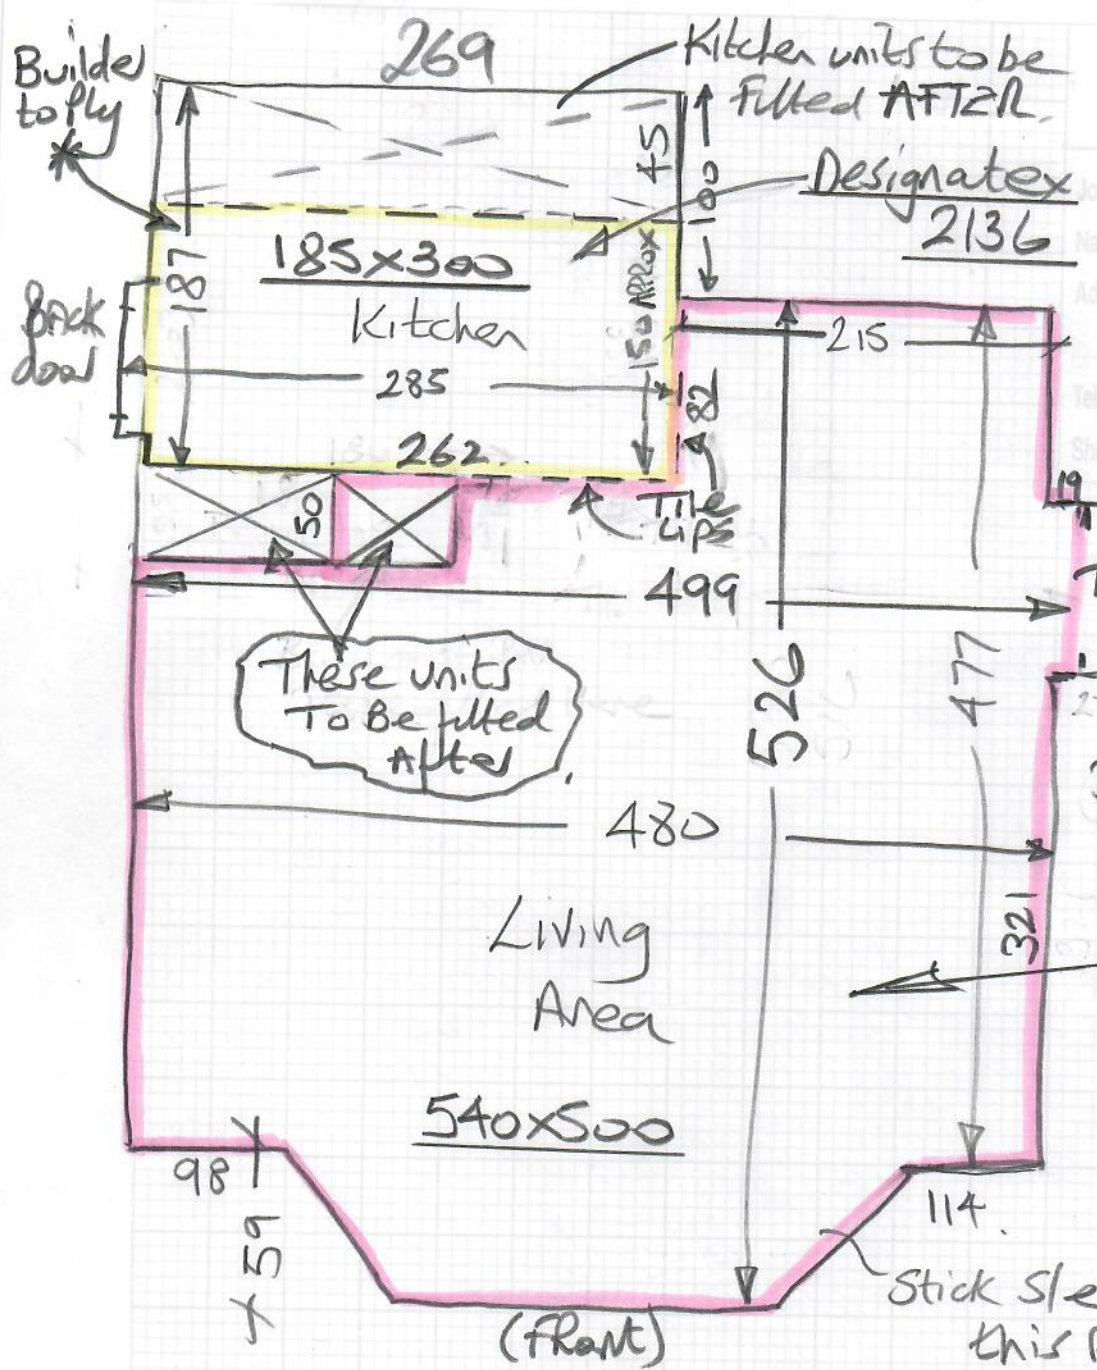 Builder
to Ply
*
269
Kitchen units to be
Fitted AFTER.
45
100
Designatex
2136
187
185x300
Kitchen
150 APPROX
Back
door
285
215
82
262
Tile
Lips
50
19
499
These units
To Be fitted
After
526
477
480
321
Living
Area
540x500
98
x 59
114.
(Front)
Stick Sle
this